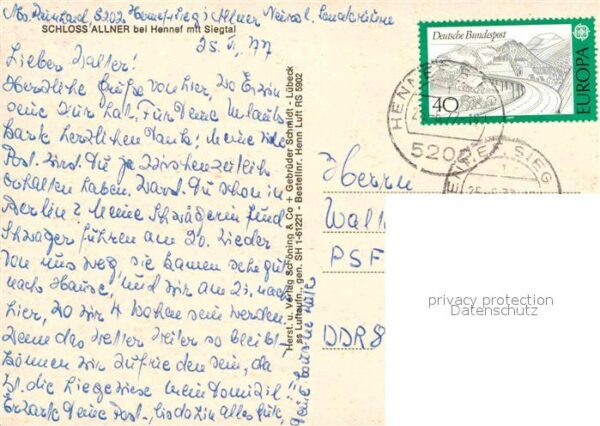 SCHLOSS ALLNER bei Hennef mit Siegtal
25. 6. 77
Lieber Walter!
Herzliche Grüße von hier, wo Erwin
seine Kur hat. Für Deine Urlaubs
karte herzlichen Dank! Meine
Post wirst Du ja zwischenzeitlich
erhalten haben. Warst Du schon in
Berlin? Meine Schwägerin und
Schwager fuhren am 20. wieder
von uns weg, sie kamen sehr gut
nach Hause, und wir am 23. nach
hier, wo wir 4 Wochen sein werden.
Wenn das Wetter weiter so bleibt
können wir zufrieden sein, da
ist die Liegewiese mein Domizil!!
Erwarte Deine Post, bis dahin alles Gute,
Herst. u. Verlag Schöning & Co + Gebrüder Schmidt - Lübeck
ss Luftaufn., gen. SH 1-61221 - Bestellnr. Henn Luft RS 5902
Deutsche Bundespost
40
EUROPA
HENNEF
5202
SIEG
Herrn
Wal
PSF
DDR 8
privacy protection
Datenschutz